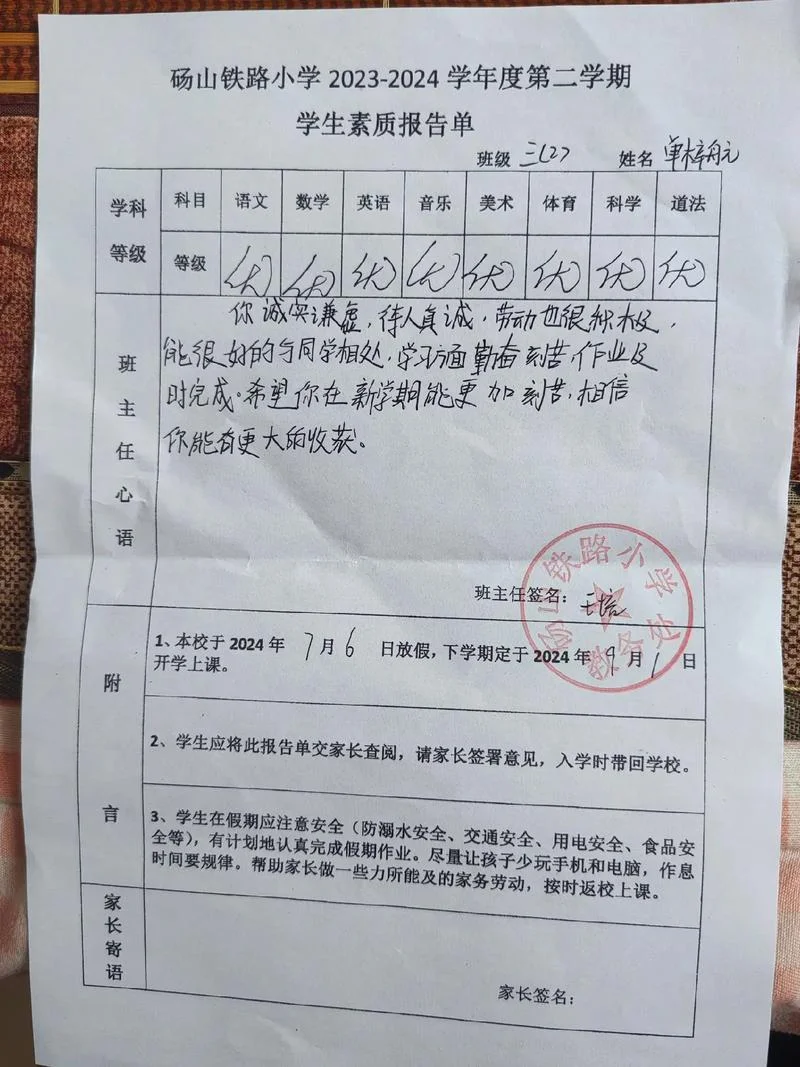 砀山铁路小学 2023-2024 学年度第二学期
学生素质报告单
班级 三(2) 姓名 单梓舟元
学科等级 科目 语文 数学 英语 音乐 美术 体育 科学 道法
等级 优 优 优 优 优 优 优 优
班主任心语
你诚实谦虚，待人真诚，劳动也很积极，
能很好的与同学相处，学习方面勤奋刻苦，作业及
时完成。希望你在新学期能更加刻苦，相信
你能有更大的收获。
班主任签名：
砀山铁路小学
教务处
附言
1、本校于 2024 年 7 月 6 日放假，下学期定于 2024 年 9 月 1 日
开学上课。
2、学生应将此报告单交家长查阅，请家长签署意见，入学时带回学校。
3、学生在假期应注意安全（防溺水安全、交通安全、用电安全、食品安
全等），有计划地认真完成假期作业。尽量让孩子少玩手机和电脑，作息
时间要规律。帮助家长做一些力所能及的家务劳动，按时返校上课。
家长寄语
家长签名：